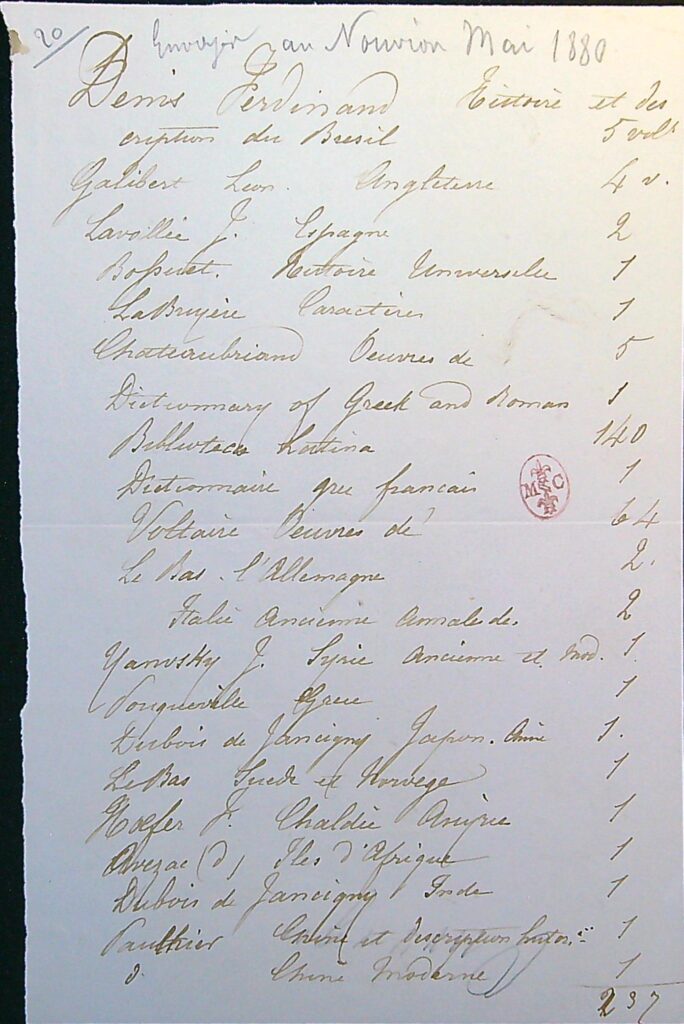 20/ Envoyer au Nouvion Mai 1880
Denis Ferdinand Histoire et des
cription du Bresil 5 vols
Galibert Leon. Angleterre 4 v.
Lavallée J. Espagne 2
Bossuet. Histoire Universelle 1
LaBruyère Caractères 1
Chateaubriand Oeuvres de 5
Dictionnary of Greek and Roman 1
Biblioteca Latina 140
Dictionnaire grec francais 1
M C
Voltaire Oeuvres de 64
Le Bas. l'Allemagne 2.
Italie Ancienne Annales des. 2
Yanosky J. Syrie Ancienne et Mod. 1.
Pouqueville Grece 1
Dubois de Jancigny Japon. 1.
LeBas Suede et Norvege 1
Hoefer F. Chaldée 1
Avezac (d) Iles d'Afrique 1
Dubois de Jancigny Inde 1
Pauthier Chine et description histor. 1
d. Chine Moderne 1
237